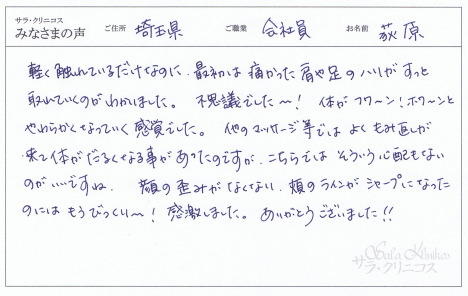 サラ・クリニコス
みなさまの声 ご住所 埼玉県 ご職業 会社員 お名前 荻原
軽く触れているだけなのに、最初は痛かった肩や足のハリがすっと
取れていくのがわかりました。不思議でした〜! 体がフワ〜ン!ホワ〜ンと
やわらかくなっていく感覚でした。他のマッサージ等ではよくもみ返しが
来て体がだるくなる事があったのですが、こちらではそういう心配もない
のがいいですね。顔の歪みがなくない、頬のラインがシャープになった
のにはもうびっくり〜! 感激しました。ありがとうございました!!
Sala Klinikos
サラ・クリニコス